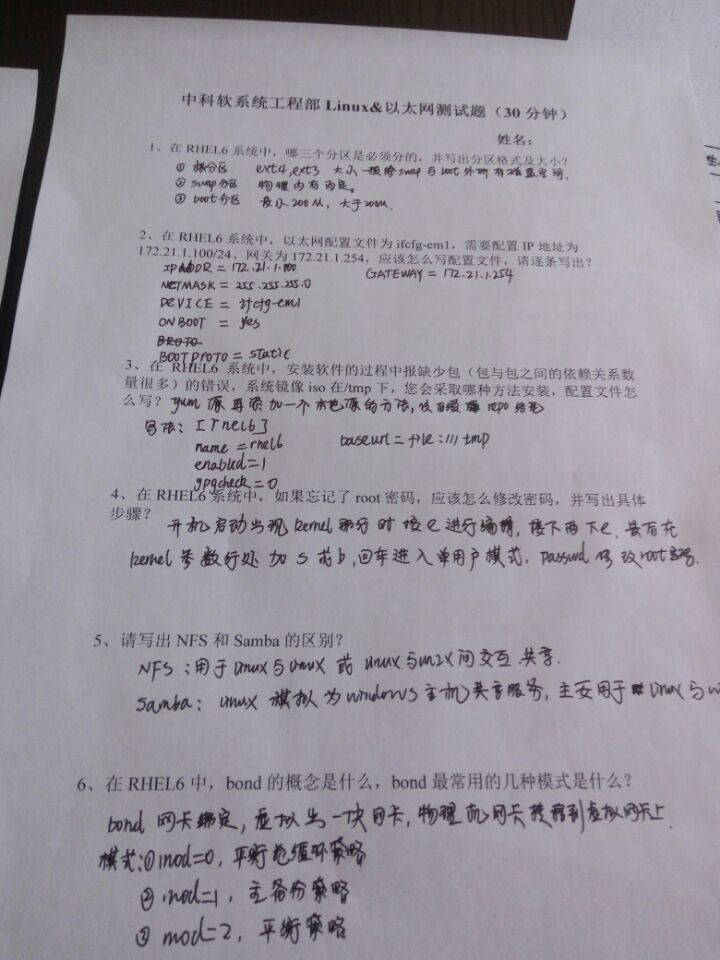 中科软系统工程部 Linux&以太网测试题（30 分钟）
姓名：
1、在 RHEL6 系统中，哪三个分区是必须分的，并写出分区格式及大小？
① 根分区 ext4,ext3 大小一般除swap与boot外所有磁盘空间.
② swap分区 物理内存而定。
③ boot分区 最小200M，大于200M.
2、在 RHEL6 系统中，以太网配置文件为 ifcfg-em1，需要配置 IP 地址为
172.21.1.100/24、网关为 172.21.1.254，应该怎么写配置文件，请逐条写出？
IPADDR = 172.21.1.100 GATEWAY = 172.21.1.254
NETMASK = 255.255.255.0
DEVICE = ifcfg-em1
ONBOOT = yes
BROTO
BOOTPROTO = static
3、在 RHEL6 系统中，安装软件的过程中报缺少包（包与包之间的依赖关系数
量很多）的错误，系统镜像 iso 在/tmp 下，您会采取哪种方法安装，配置文件怎
么写？ yum 源再添加一个本地源的方法， repo 结尾
写法：[rhel6]
name = rhel6 baseurl = file:///tmp
enabled=1
gpgcheck=0
4、在 RHEL6 系统中，如果忘记了 root 密码，应该怎么修改密码，并写出具体
步骤？ 开机启动出现kernel部分时按e进行编辑，按下两下e，最后在
kernel 参数行处加 s 或 b，回车进入单用户模式，passwd 修改root密码.
5、请写出 NFS 和 Samba 的区别？
NFS：用于linux与linux 或 linux与unix间交互.共享.
Samba：linux 模拟为windows主机共享服务，主要用于linux与wi
6、在 RHEL6 中，bond 的概念是什么，bond 最常用的几种模式是什么？
bond 网卡绑定，虚拟出一块网卡，物理机网卡桥接到虚拟网卡上.
模式：①mod=0，平衡轮循环策略
② mod=1，主备份策略
③ mod=2，平衡策略